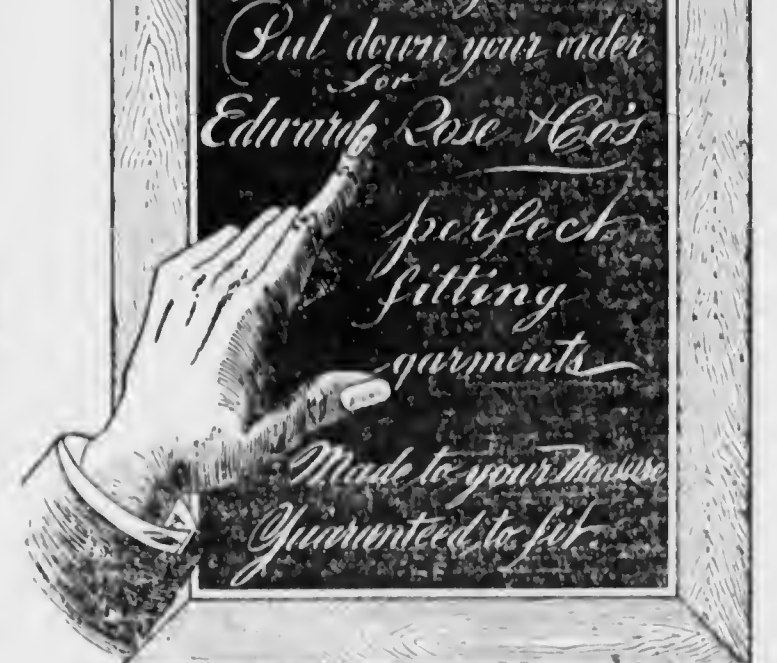 Put down your order
for
Edward Rose & Co's
perfect
fitting
garments
Made to your Measure
Guaranteed to fit.